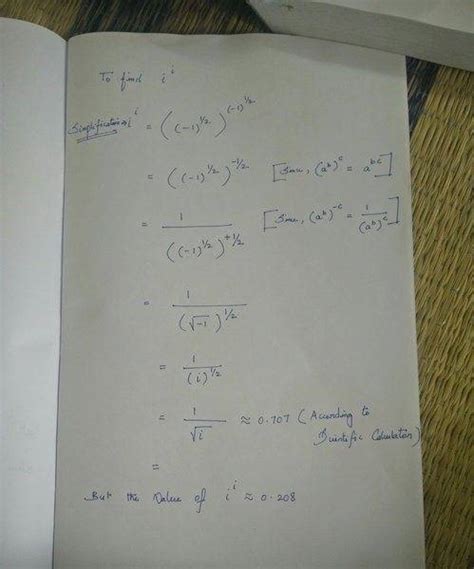 To find i^i
Simplification⇒ i^i = ((-1)^{1/2})^{(-1)^{1/2}}
= ((-1)^{1/2})^{-1/2} [Since, (a^b)^c = a^{bc}]
= 1/((-1)^{1/2})^{+1/2} [Since, (a^b)^{-c} = 1/(a^b)^c]
= 1/(√-1)^{1/2}
= 1/(i)^{1/2}
= 1/√i ≈ 0.707 (According to
Scientific Calculator)
=
But the value of i^i ≈ 0.208